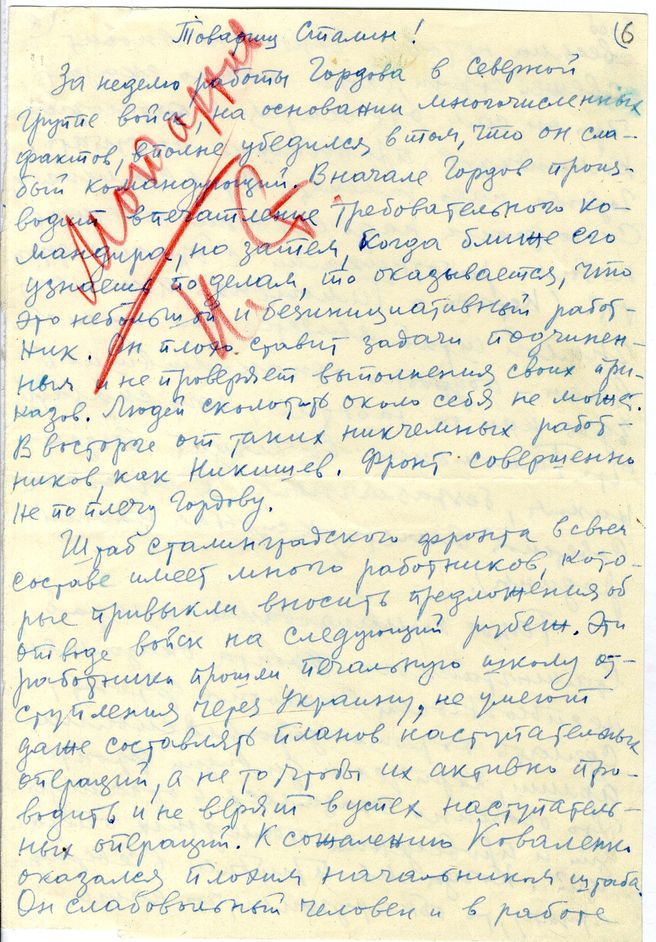 Товарищ Сталин!
6
За неделю работы Гордова в Северной
группе войск, на основании многочисленных
фактов, вполне убедился в том, что он сла-
бый командующий. Вначале Гордов произ-
водит впечатление требовательного ко-
мандира, но затем, когда ближе его
узнаешь по делам, то оказывается, что
это небольшой и безинициативный работ-
ник. Он плохо ставит задачи подчинен-
ным и не проверяет выполнения своих при-
казов. Людей сколотить около себя не может.
В восторге от таких никчемных работ-
ников, как Никишев. Фронт совершенно
не по плечу Гордову.
Штаб Сталинградского фронта в своем
составе имеет много работников, кото-
рые привыкли вносить предложения об
отводе войск на следующий рубеж. Эти
работники прошли печальную школу от-
ступления через Украину, не умеют
даже составлять планов наступательных
операций, а не то чтобы их активно про-
водить и не верят в успех наступатель-
ных операций. К сожалению Коваленко
оказался плохим начальником штаба.
Он слабовольный человек и в работе
И. Ст.